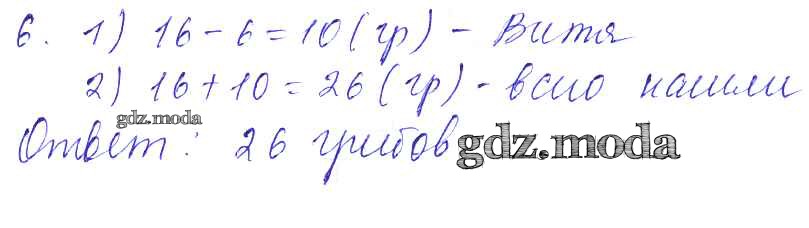 6. 1) 16 - 6 = 10 (гр) - Витя
2) 16 + 10 = 26 (гр) - всио нашли
gdz.moda
Ответ: 26 грибов
gdz.moda